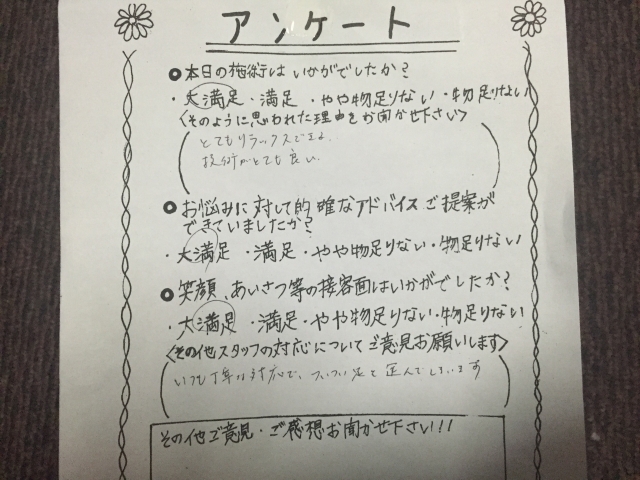 アンケート
本日の施術はいかがでしたか?
・大満足・満足・やや物足りない・物足りない
<そのように思われた理由をお聞かせ下さい>
とてもリラックスできる。
技術がとても良い。
お悩みに対して的確なアドバイスご提案が
できていましたか?
・大満足・満足・やや物足りない・物足りない
笑顔、あいさつ等の接客面はいかがでしたか?
・大満足・満足・やや物足りない・物足りない
<その他スタッフの対応についてご意見お願いします>
いつも丁寧な対応で、ついつい足を運んでしまいます
その他ご意見・ご感想お聞かせ下さい!!!